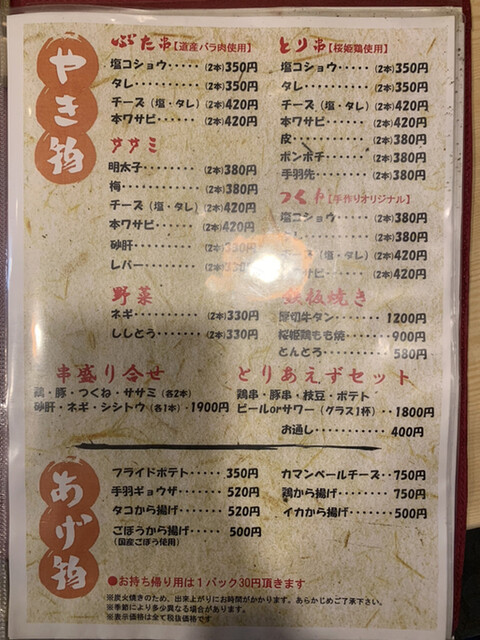 やき物
ぶた串【道産バラ肉使用】
塩コショウ・・・・・(2本)350円
タレ・・・・・・・・(2本)350円
チーズ（塩・タレ）(2本)420円
本ワサビ・・・・・・(2本)420円
ササミ
明太子・・・・・・・(2本)380円
梅・・・・・・・・・(2本)380円
チーズ（塩・タレ）(2本)420円
本ワサビ・・・・・・(2本)420円
砂肝・・・・・・・・(2本)330円
レバー・・・・・・・(2本)330円
野菜
ネギ・・・・・・・・(2本)330円
ししとう・・・・・・(2本)330円
とり串【桜姫鶏使用】
塩コショウ・・・・・(2本)350円
タレ・・・・・・・・(2本)350円
チーズ（塩・タレ）(2本)420円
本ワサビ・・・・・・(2本)420円
皮・・・・・・・・・(2本)380円
ボンボチ・・・・・・(2本)380円
手羽先・・・・・・・(2本)380円
つくね【手作りオリジナル】
塩コショウ・・・・・(2本)380円
(2本)380円
（塩・タレ）(2本)420円
ワサビ・・・・・・(2本)420円
鉄板焼き
厚切牛タン・・・・・1200円
桜姫鶏もも焼・・・・・900円
とんとろ・・・・・・・580円
串盛り合せ
鶏・豚・つくね・ササミ（各2本）
砂肝・ネギ・シシトウ（各1本）・1900円
とりあえずセット
鶏串・豚串・枝豆・ポテト
ビールorサワー（グラス1杯）・・1800円
お通し・・・・・・400円
あげ物
フライドポテト・・・・350円
手羽ギョウザ・・・・・520円
タコから揚げ・・・・・520円
ごぼうから揚げ・・・・500円
（国産ごぼう使用）
カマンベールチーズ・・750円
鶏から揚げ・・・・・・750円
イカから揚げ・・・・・500円
●お持ち帰り用は１パック30円頂きます
※炭火焼きのため、出来上がりにお時間がかかります。あらかじめご了承下さい。
※季節により多少異なる場合があります。
※表示価格は全て税抜価格です